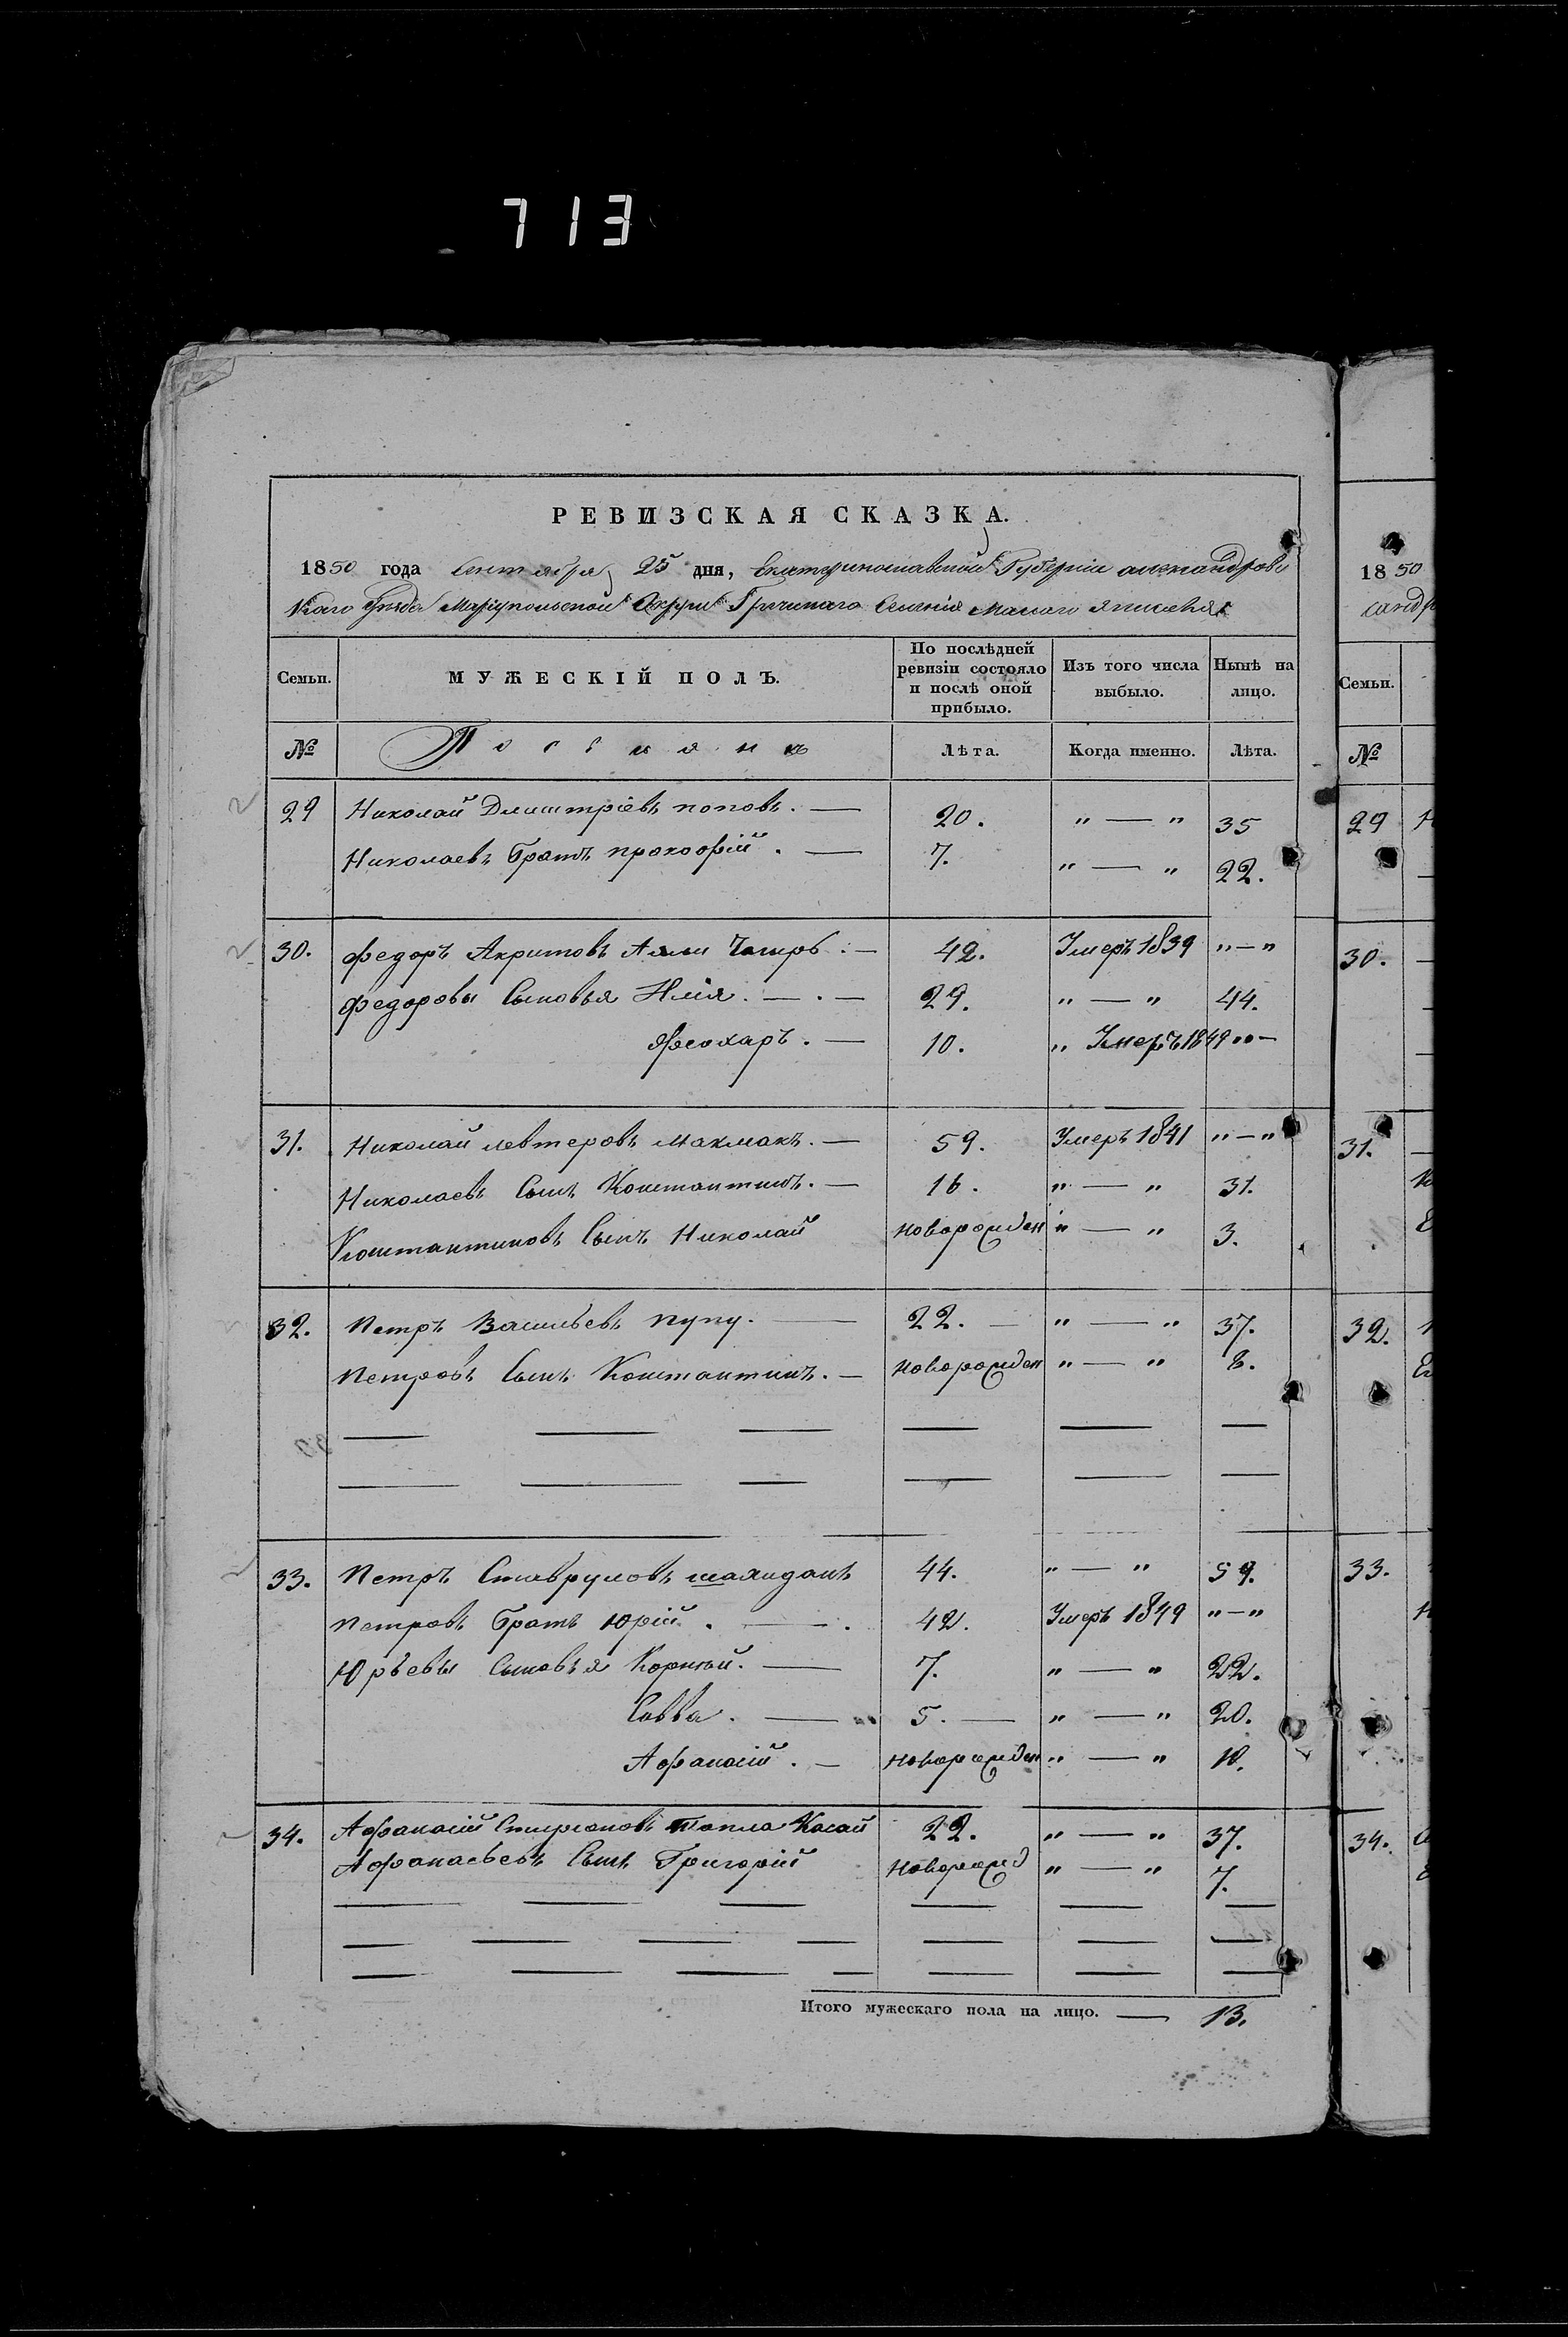 713
РЕВИЗСКАЯ СКАЗКА.
1850 года Сентября 25 дня, Екатеринославской Губерніи александровс
каго уѣзда Маріупольской Округи Греческаго Селенія Малаго янисоля
Семьи. МУЖЕСКІЙ ПОЛЪ. По послѣдней ревизіи состояло и послѣ оной прибыло. Изъ того числа выбыло. Нынѣ на лицо.
№ Поселянъ Лѣта. Когда именно. Лѣта.
29 Николай Дмитріевъ поповъ. — 20. " — " 35
Николаевъ братъ прокофій. — 7. " — " 22.
30. Федоръ Акритовъ Чатръ. — 42. Умеръ 1839 " — "
Федоровы Сыновья Илія. — . — 29. " — " 44.
Феохаръ. — 10. " Умеръ 1849 " —
31. Николай левтеровъ макмакъ. — 59. Умеръ 1841 " — "
Николаевъ Сынъ Константинъ. — 16. " — " 31.
Константиновъ Сынъ Николай новорожден " — " 3.
32. Петръ Васильевъ пупу. — 22. — " — " 37.
Петровъ Сынъ Константинъ. — новорожден " — " 8.
33. Петръ Ставруловъ шахиданъ 44. " — " 59.
Петровъ братъ Юрій. — . 42. Умеръ 1849 " — "
Юрьевы Сыновья Корнѣй. — 7. " — " 22.
Савва. — 5. — " — " 20.
Афанасій. — новорожден " — " 10.
34. Афанасій Стиріоновъ Топла Касай 22. " — " 37.
Афанасьевъ Сынъ Григорій новорожд " — " 7.
Итого мужескаго пола на лицо. — 13.
1850
санд
Семьи.
№
29
30.
31.
32.
33.
34.